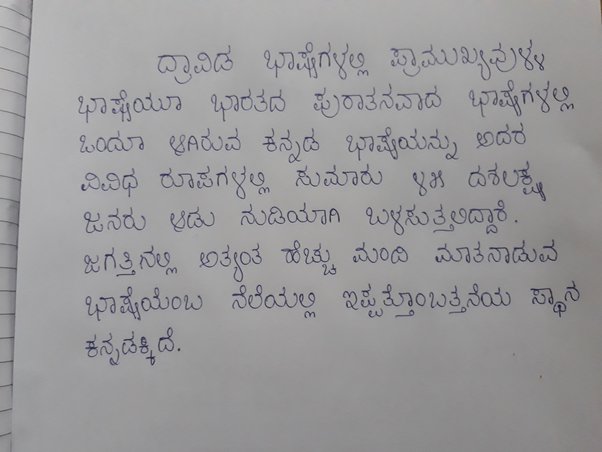 ದ್ರಾವಿಡ ಭಾಷೆಗಳಲ್ಲಿ ಪ್ರಾಮುಖ್ಯವುಳಳ
ಭಾಷೆಯೂ ಭಾರತದ ಪುರಾತನವಾದ ಭಾಷೆಗಳಲ್ಲಿ
ಒಂದೂ ಆಗಿರುವ ಕನ್ನಡ ಭಾಷೆಯನ್ನು ಅದರ
ವಿವಿಧ ರೂಪಗಳಲ್ಲಿ ಸುಮಾರು ೪೫ ದಶಲಕ್ಷ
ಜನರು ಆಡು ನುಡಿಯಾಗಿ ಬಳಸುತ್ತಲಿದ್ದಾರೆ.
ಜಗತ್ತಿನಲ್ಲಿ ಅತ್ಯಂತ ಹೆಚ್ಚು ಮಂದಿ ಮಾತನಾಡುವ
ಭಾಷೆಯೆಂಬ ನೆಲೆಯಲ್ಲಿ ಇಪ್ಪತ್ತೊಂಬತ್ತನೆಯ ಸ್ಥಾನ
ಕನ್ನಡಕ್ಕಿದೆ.